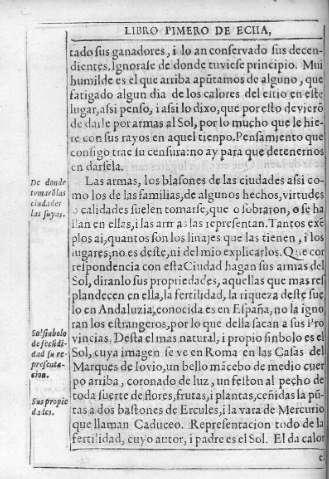 LIBRO PIMERO DE ECIIA,
tado sus ganadores, i lo an conservado sus decen-
dientes. Ignorase de donde tuviese principio. Mui
humilde es el que arriba apũtamos de alguno, que
fatigado algun dia de los calores del estio en este
lugar, assi penso, i assi lo dixo, que por esto devierõ
de darle por armas al Sol, por lo mucho que le hie-
re con sus rayos en aquel tienpo. Pensamiento que
consigo trae su censura: no ay para que detenernos
en darsela.
De donde
tomarõ las
ciudades
las suyas.
Las armas, los blasones de las ciudades assi co-
mo los de las familias, de algunos hechos, virtudes
o calidades suelen tomarse, que o sobraron, o se ha
llan en ellas, i las armas las representan. Tantos exẽ
plos ai, quantos son los linajes que las tienen, i los
lugares; no es deste, ni del mio explicarlos. Que cor
respondencia con esta Ciudad hagan sus armas del
Sol, diranlo sus propiedades, aquellas que mas res
plandecen en ella, la fertilidad, la riqueza deste sue
lo en Andaluzia, conocida es en España, no la igno
ran los estrangeros, por lo que della sacan a sus Pro
vincias. Desta el mas natural, i propio sinbolo es el
Sol, cuya imagen se ve en Roma en las Casas del
Marques de Iovio, un bello mãcebo de medio cuer
po arriba, coronado de luz, un feston al pecho de
toda suerte de flores, frutas, i plantas, ceñidas la pũ-
tas a dos bastones de Ercules, i la vara de Mercurio
que llaman Caduceo. Representacion todo de la
fertilidad, cuyo autor, i padre es el Sol. El da calor
Sol sinbolo
de fecũdi-
dad su re-
presenta-
cion.
Sus propie
dades.